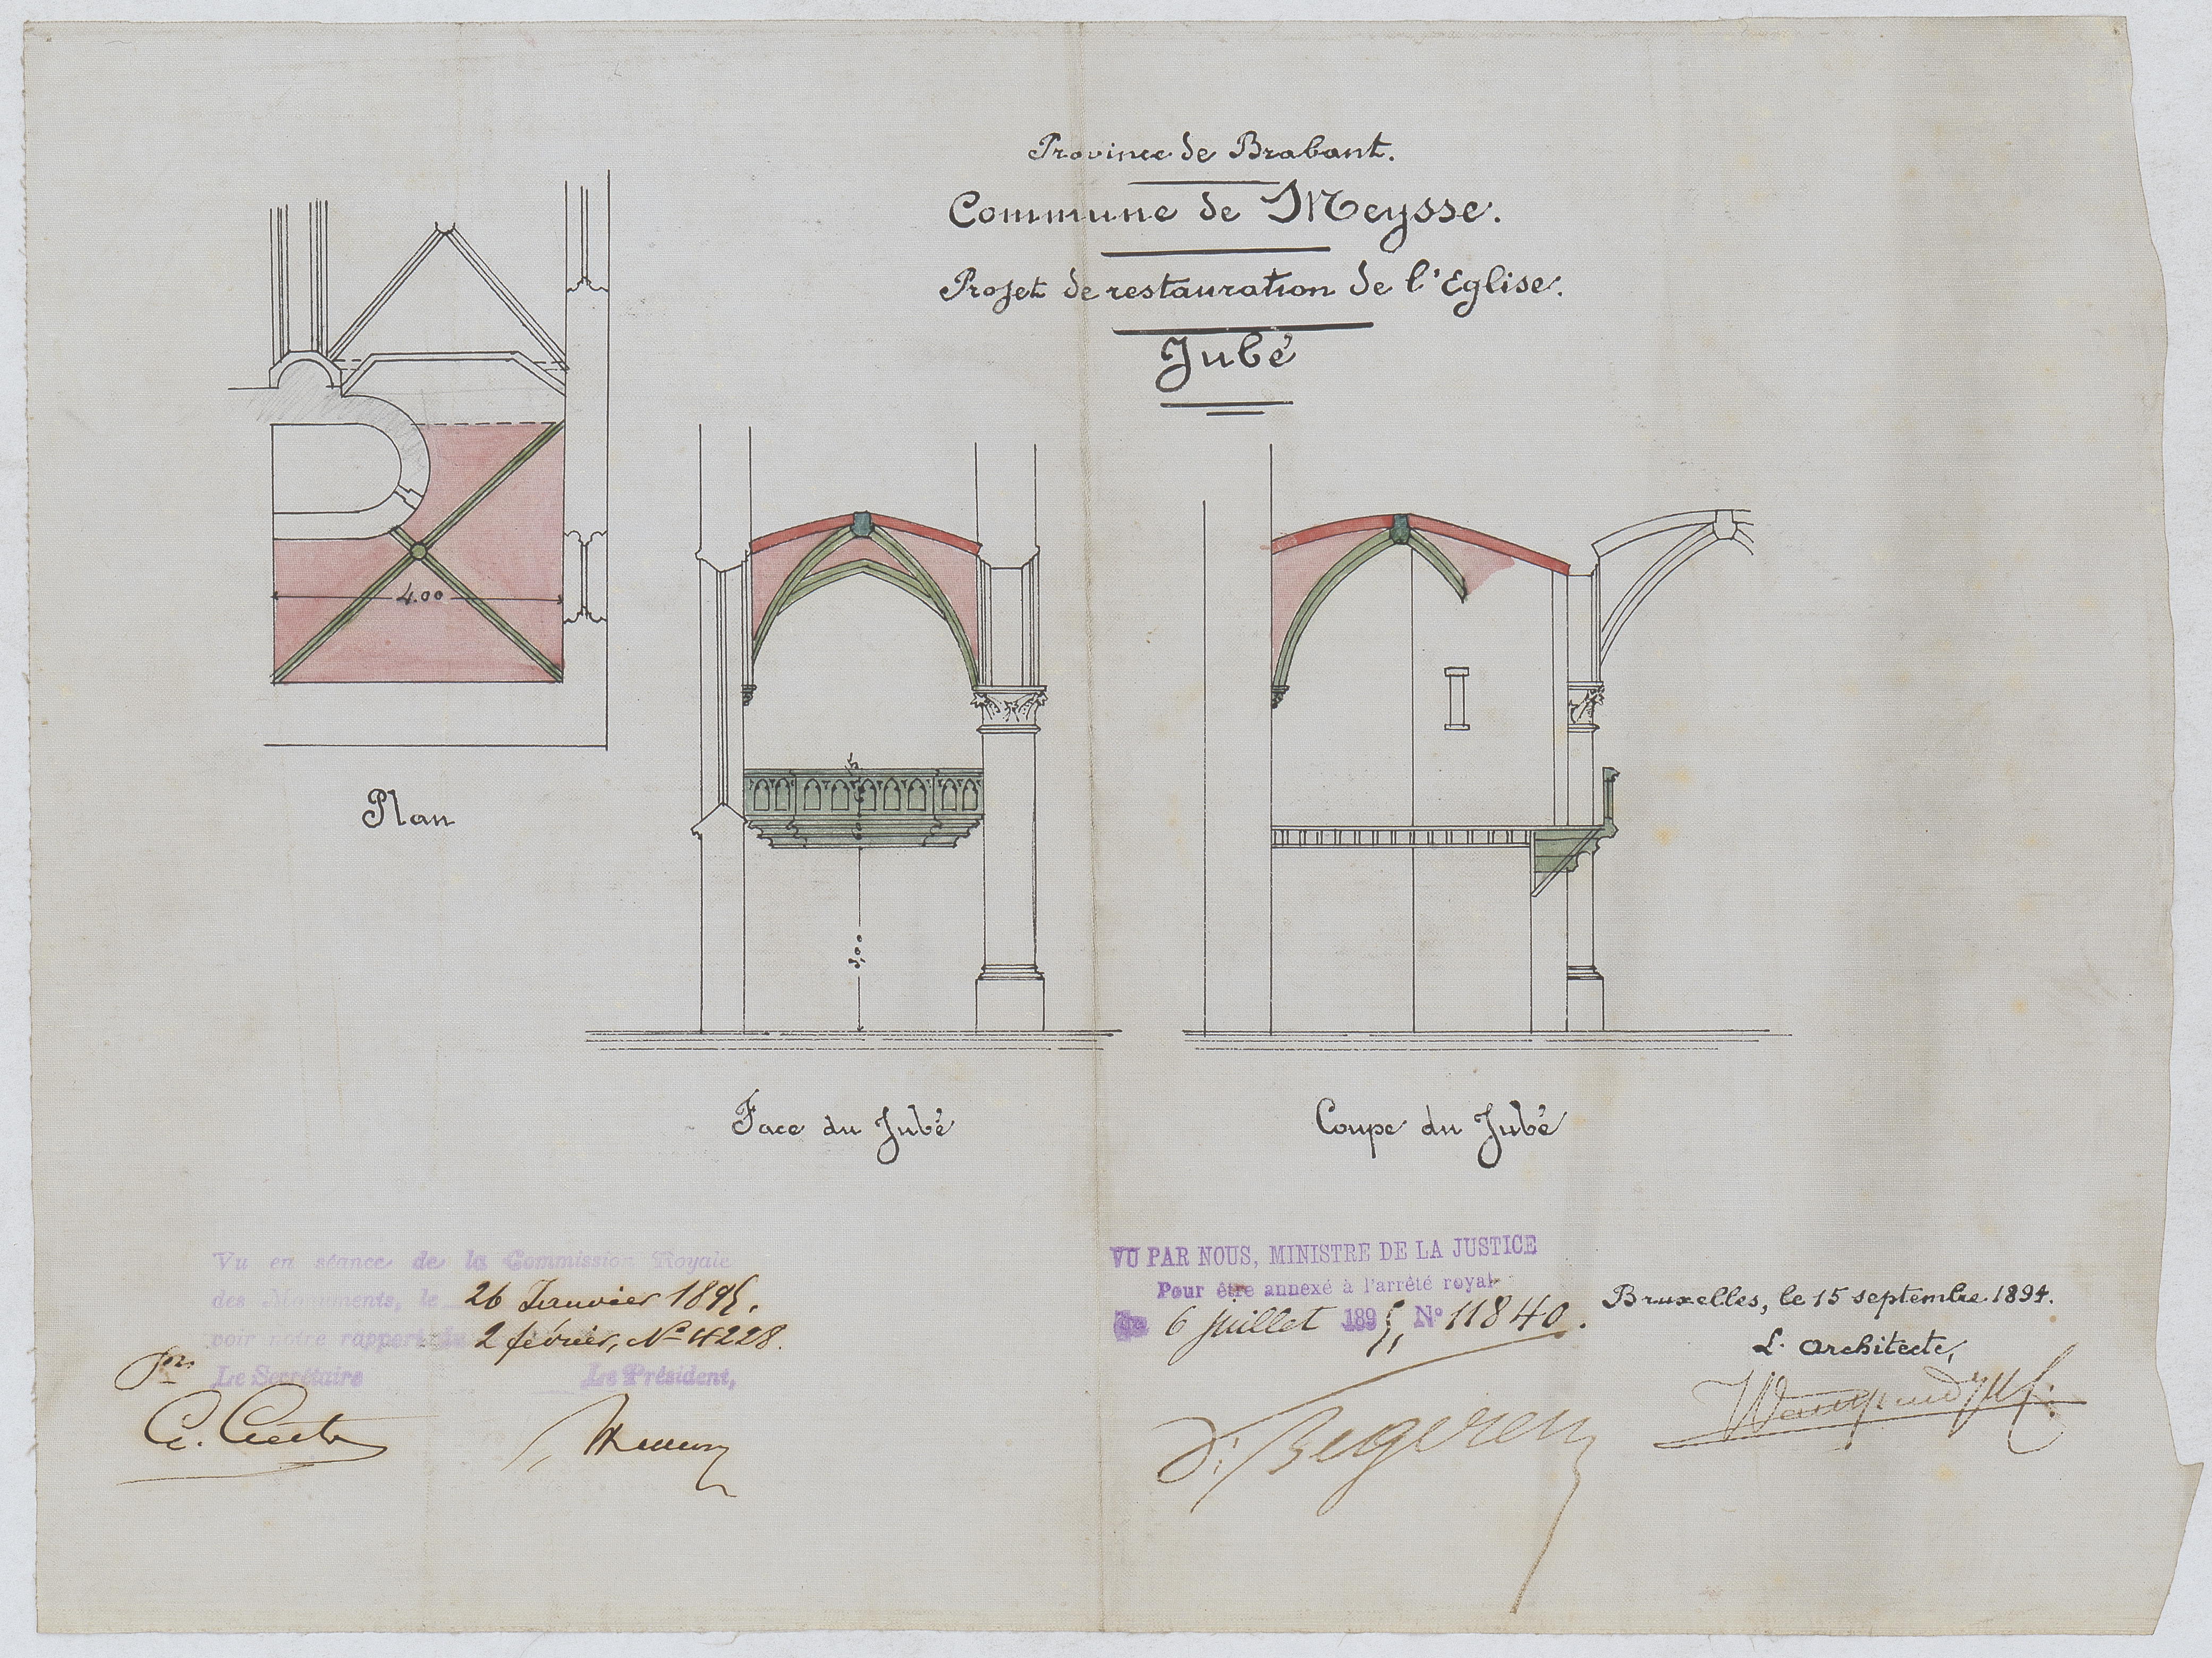 Province de Brabant.
Commune de Meysse.
Projet de restauration de l'Eglise.
Jubé
4.00
Plan
3.00
Face du Jubé
Coupe du Jubé
Vu en séance de la Commission Royale
des Monuments, le 26 Janvier 1895.
voir notre rapport du 2 février, No 4228.
pr
Le Secrétaire Le Président,
VU PAR NOUS, MINISTRE DE LA JUSTICE
Pour être annexé à l'arrêté royal
6 juillet 1895, No 11840.
Bruxelles, le 15 septembre 1894.
L. Architecte,